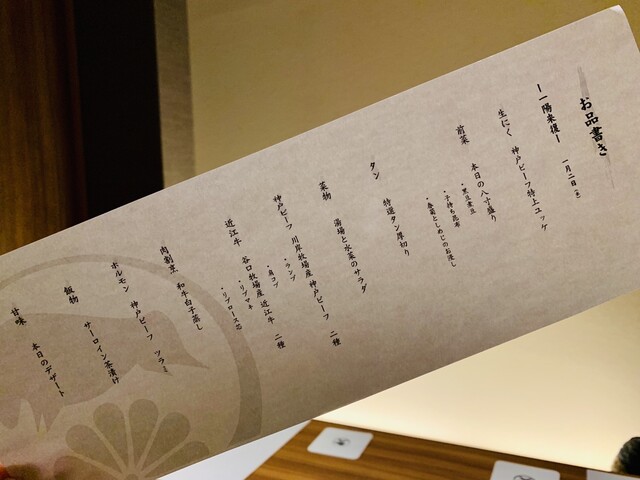 お品書き
ー一陽来復ー 一月二日
生にく 神戸ビーフ特上ユッケ
前菜 本日の八寸盛り
・黒豆煮豆
・子持ち昆布
・春菊としめじのお浸し
タン 特選タン厚切り
菜物 湯場と水菜のサラダ
神戸ビーフ 川岸牧場産 神戸ビーフ 二種
・ランプ
・肩コブ
近江牛 谷口牧場産 近江牛 二種
・リブマキ
・リブロース芯
肉割烹 和牛白子蒸し
ホルモン 神戸ビーフ ツラミ
飯物 サーロイン茶漬け
甘味 本日のデザート